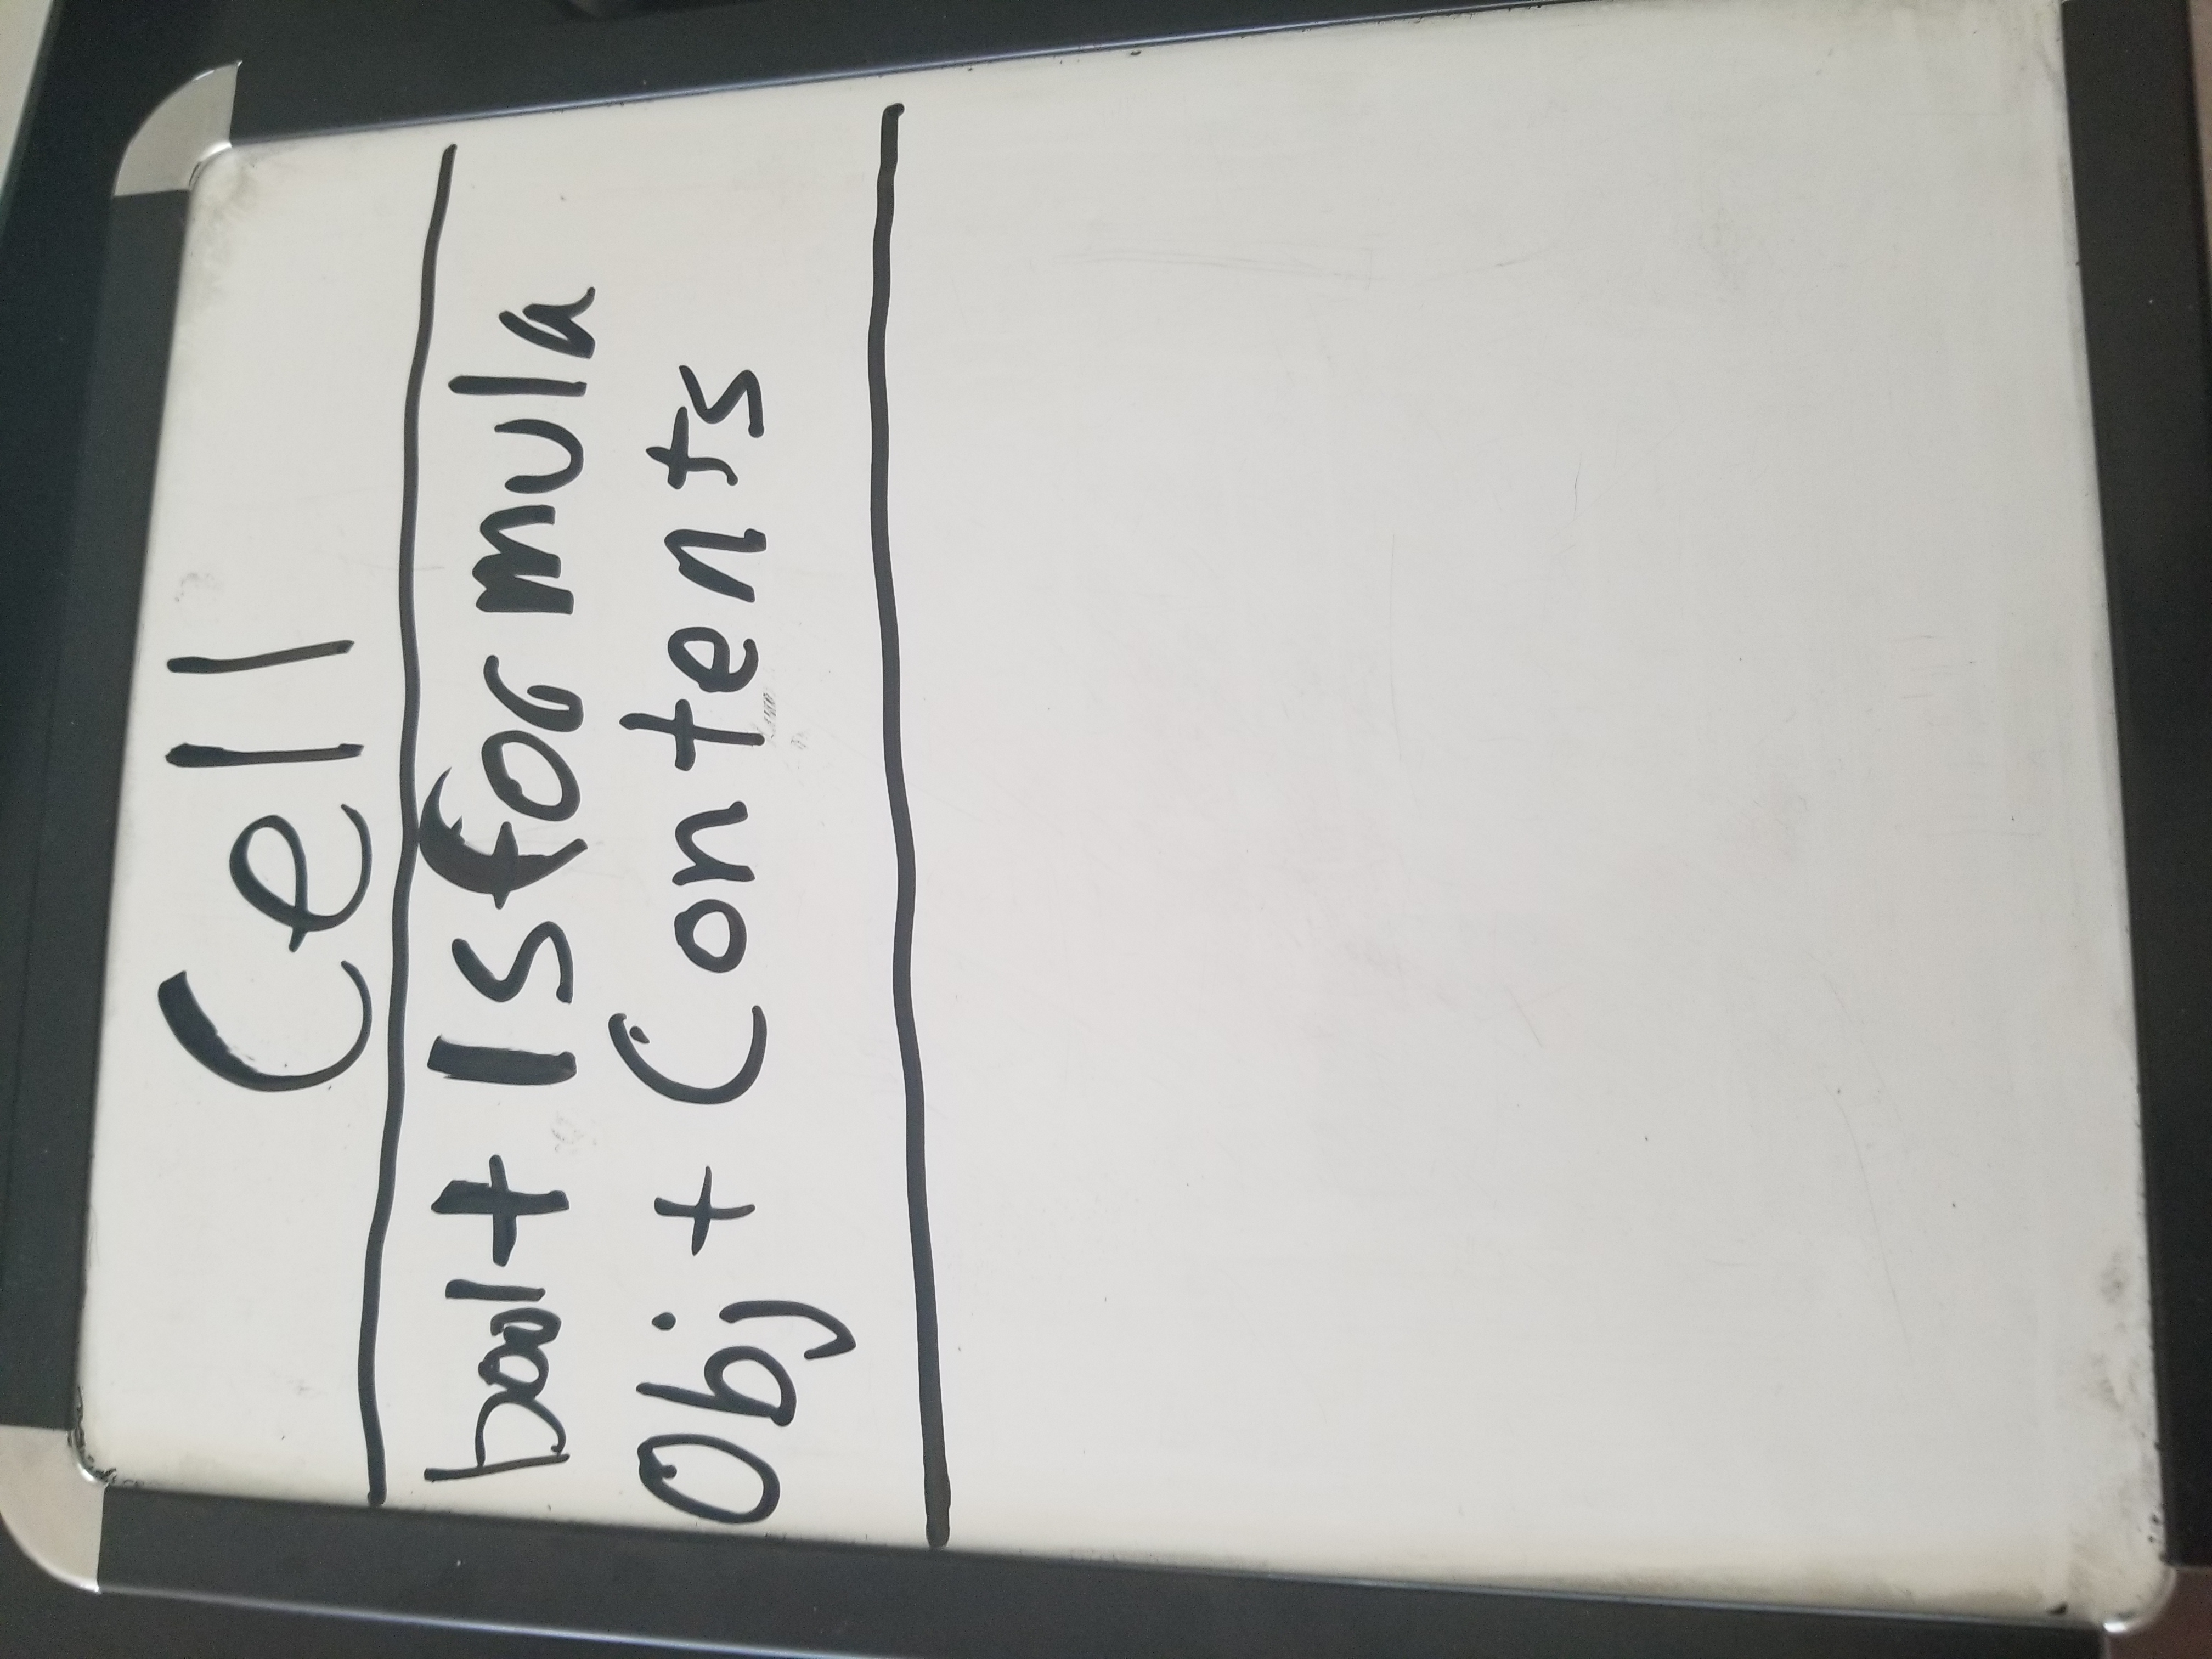 Cell
bool + Isformula
Obj + Contents